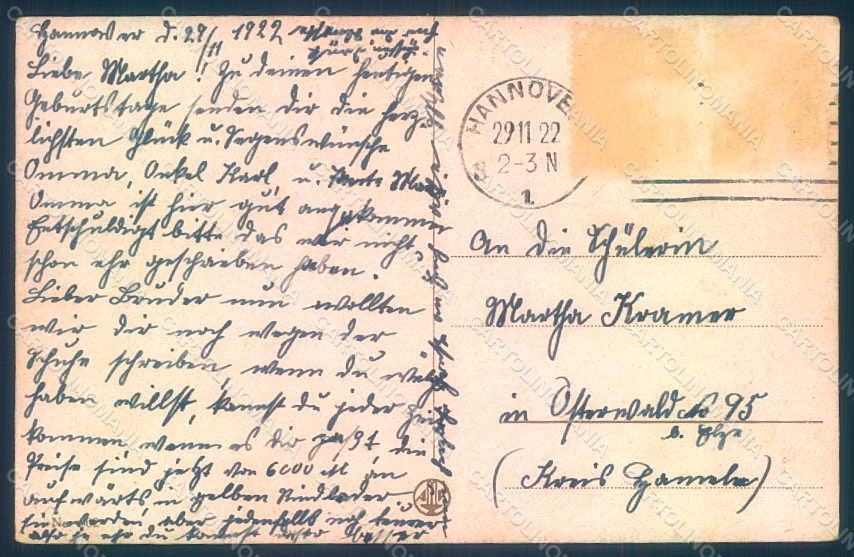 Hannover d. 29/11 1922
Liebe Martha! Zu deinen heutigen
Geburtstage senden dir die herz-
lichsten Glück u. Segenswünsche
Omma, Onkel Karl, u. Tante
Omma, ist hier gut angekommen
Entschuldigt bitte das wir nicht
schon ehr geschrieben haben.
Lieber Bruder nun wollten
wir dir noch wegen der
Schuhe schreiben, wenn du welche
haben willst, kannst du jeder Zeit
kommen, wenn es dir paßt, die
Preise sind jetzt von 6000 M an
aufwärts, in gelben Rindleder
sie werden aber jedenfalls noch teurer
also je ehr du kommst desto besser
HANNOVE
29 11 22
2-3 N
1.
An die Schülerin
Martha Kramer
in Osterwald No 95
b. Elze
(Kreis Hameln)
CARTOLINOMANIA